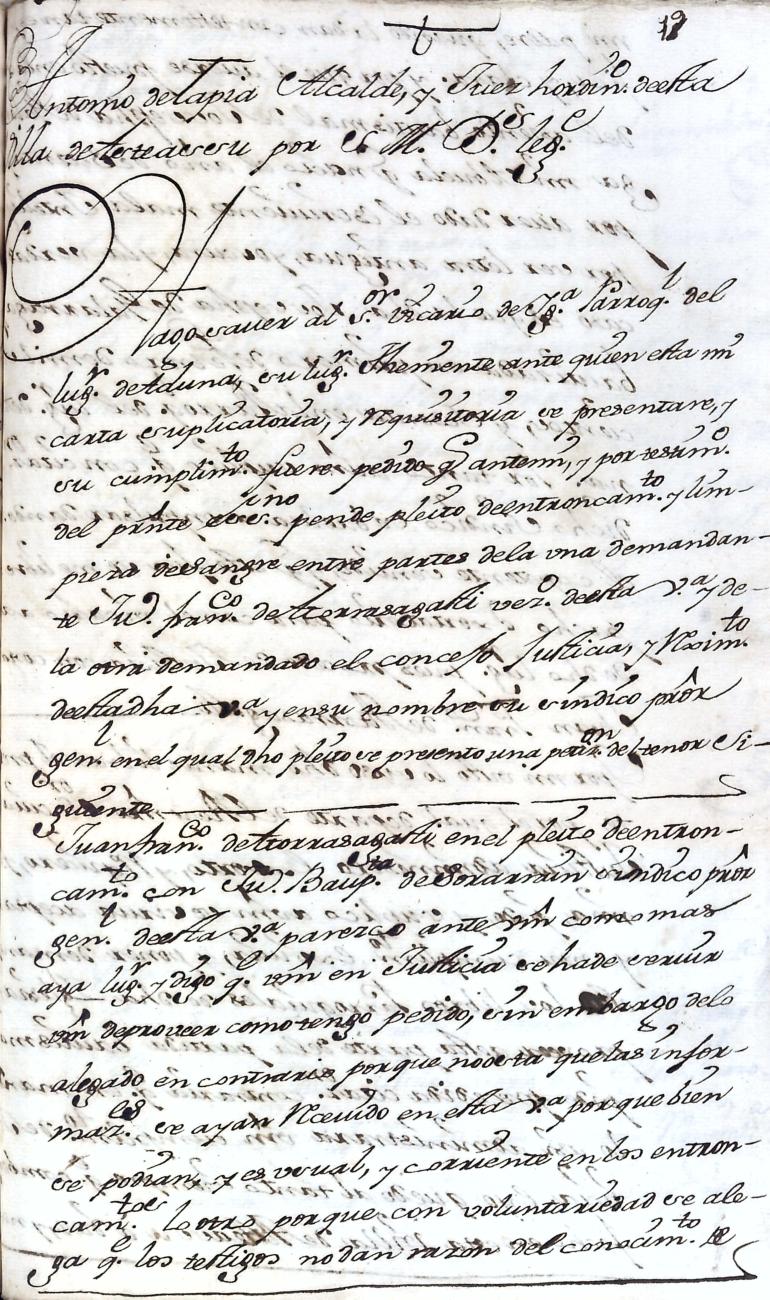 19
Antonio de tapia Alcalde, y Juez hordin.º deesta
villa de por S. M. D.s leg.e
Hago sauer al S.or vicario de Yg.a Parroq.l del
lug.r de Aduna, su lug.r Theniente ante quien esta mi
carta suplicatoria, y Requisitoria se presentare, y
su cumplim.to fuere pedido q. antemi, y por testim.º
del prnte ess.no pende pleito deentroncam.to y lim-
pieza desangre entre partes dela vna demandan-
te Ju.º fran.co de Yorrasagasti vez.º deesta v.a y de-
la otra demandado el concejo Justicia, y Rexim.to
deestadha v.a y ensu nombre su sindico prôr
gen.l en el qual dho pleito se presento una petiz.on del tenor Si-
guiente
Juanfran.co de Yorrasagasti en el pleito deentron-
cam.to con Ju.º Baup.ta de Soraraín sindico prôr
gen.l deesta v.a parezco ante vm̂ como mas
aya lug.r y digo q.e vm̂ en Justicia sehade seruir
vm̂ deproveer comotengo pedido, sin embargo delo
alegado en contrario porque noosta quelas infor-
maz.es se ayan Receuido en esta v.a porque bien
se podian, y es vsual, y corriente en los entron-
cam.tos Lotro porque con voluntariedad se ale-
ga q.e los testigos nodan razon del conocim.to